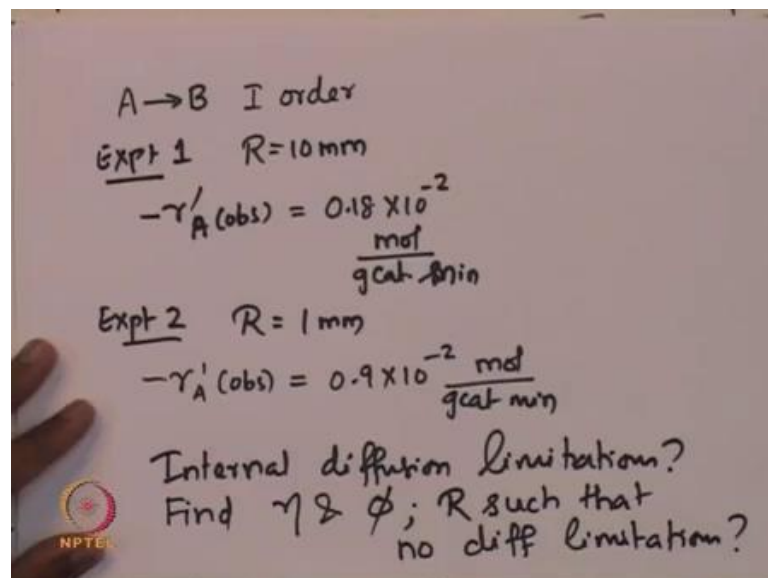 A→B I order
Expt 1 R=10mm
-r'A (obs) = 0.18 X10^-2
mol
gcat min
Expt 2 R = 1mm
-r'A (obs) = 0.9X10^-2 mol
gcat min
Internal diffusion limitation?
Find η & φ; R such that
no diff limitation?
NPTEL